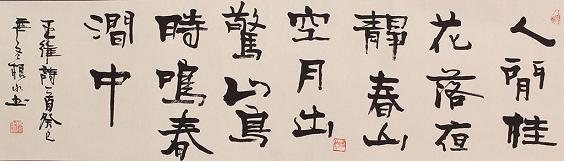 人閒桂
花落夜
靜春山
空月出
驚山鳥
時鳴春
澗中
王維詩一首癸巳